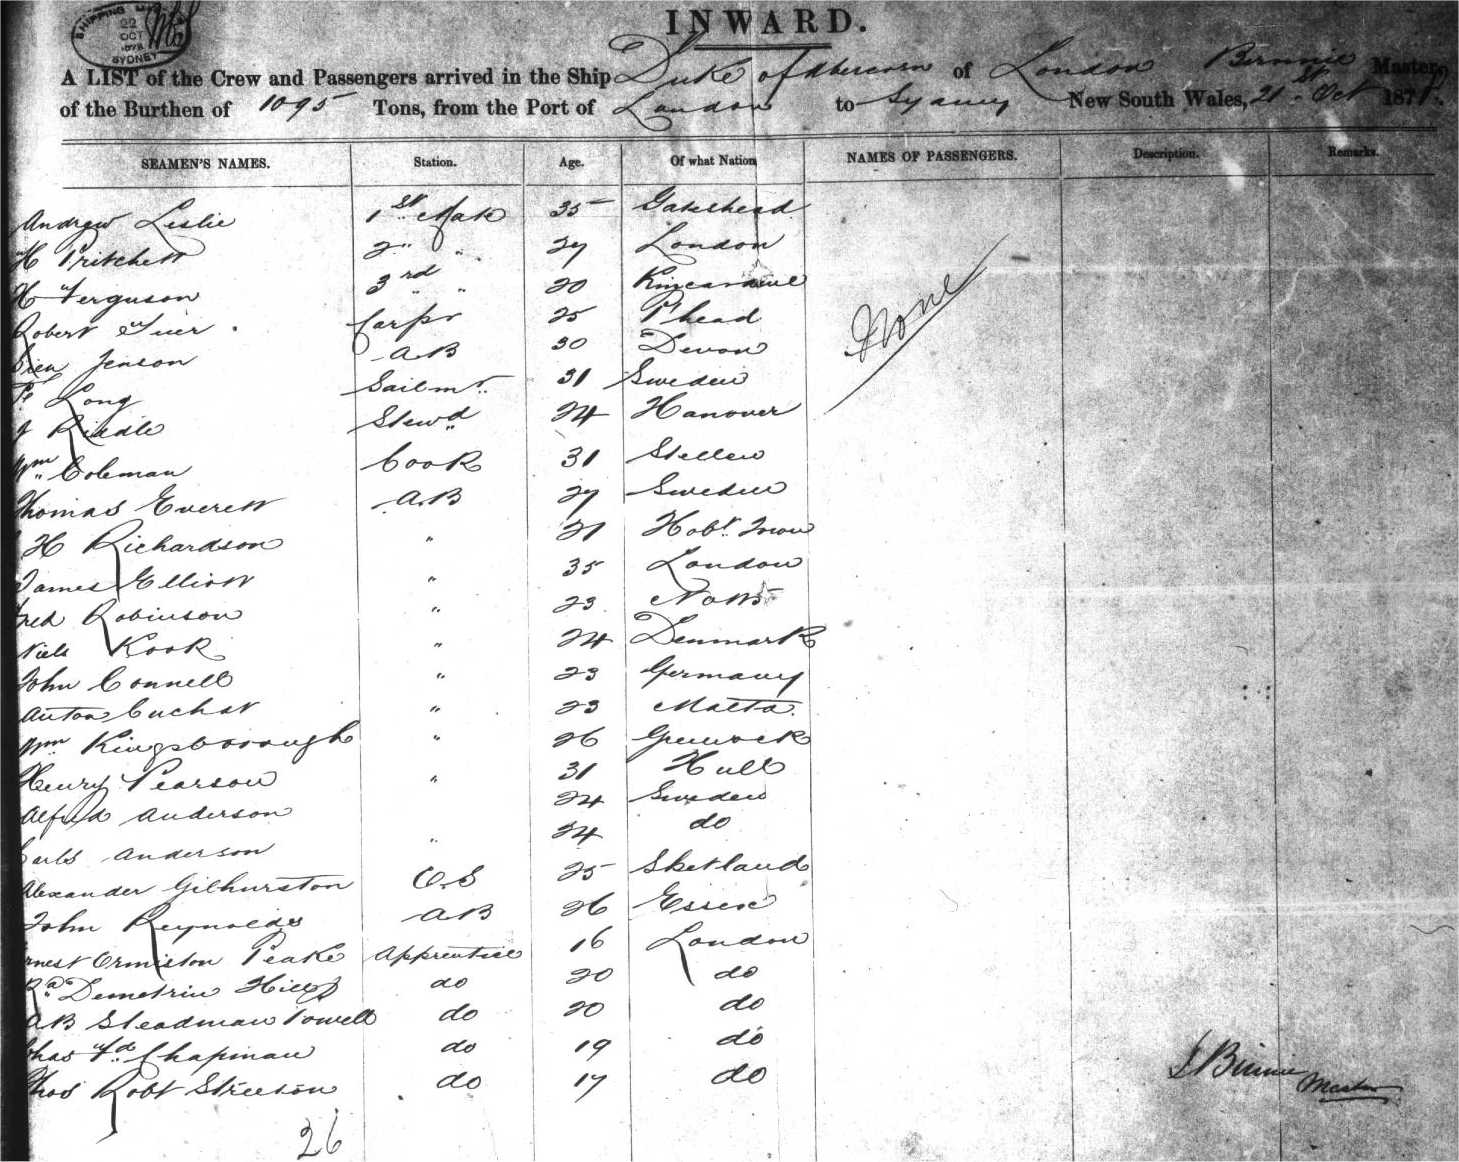 SHIPPING MAS
22
OCT
1878
SYDNEY
INWARD.
A LIST of the Crew and Passengers arrived in the Ship Duke of Abercorn of London Binnie Master,
of the Burthen of 1095 Tons, from the Port of London to Sydney New South Wales, 21st Oct 1878.
SEAMEN'S NAMES. Station. Age. Of what Nation NAMES OF PASSENGERS. Description. Remarks.
Andrew Leslie 1st Mate 35 Gateshead
H Pritchett 2" " 27 London
H Ferguson 3rd " 20 Kincardine
Robert Carpr 25 P'head
Jenson AB 30 Devon
Long Sailmr 31 Sweden
J Riddle Stewd 24 Hanover
Wm Coleman Cook 31
Thomas Everett AB 27 Sweden
H Richardson " 21 Hobt Town
James Elliott " 35 London
Fred Robinson " 23 Notts
Niels Kook " 24 Denmark
John Connell " 23 Germany
Anton Cuchat " 23 Malta.
Wm Kingsborough " 26 Greenock
Henry Pearson " 31 Hull
Alfred Anderson 24 Sweden
Carls Anderson " 24 do
Alexander Gilhurston O.S 25 Shetland
John Reynolds AB 26 Essex
Ernest Ormiston Peake Apprentice 16 London
Rd Demetriu Hill do 20 do
AB Steadman Powell do 20 do
Chas Fd Chapman do 19 do
Thos Robt Streeton do 17 do
None
J Binnie Master
26